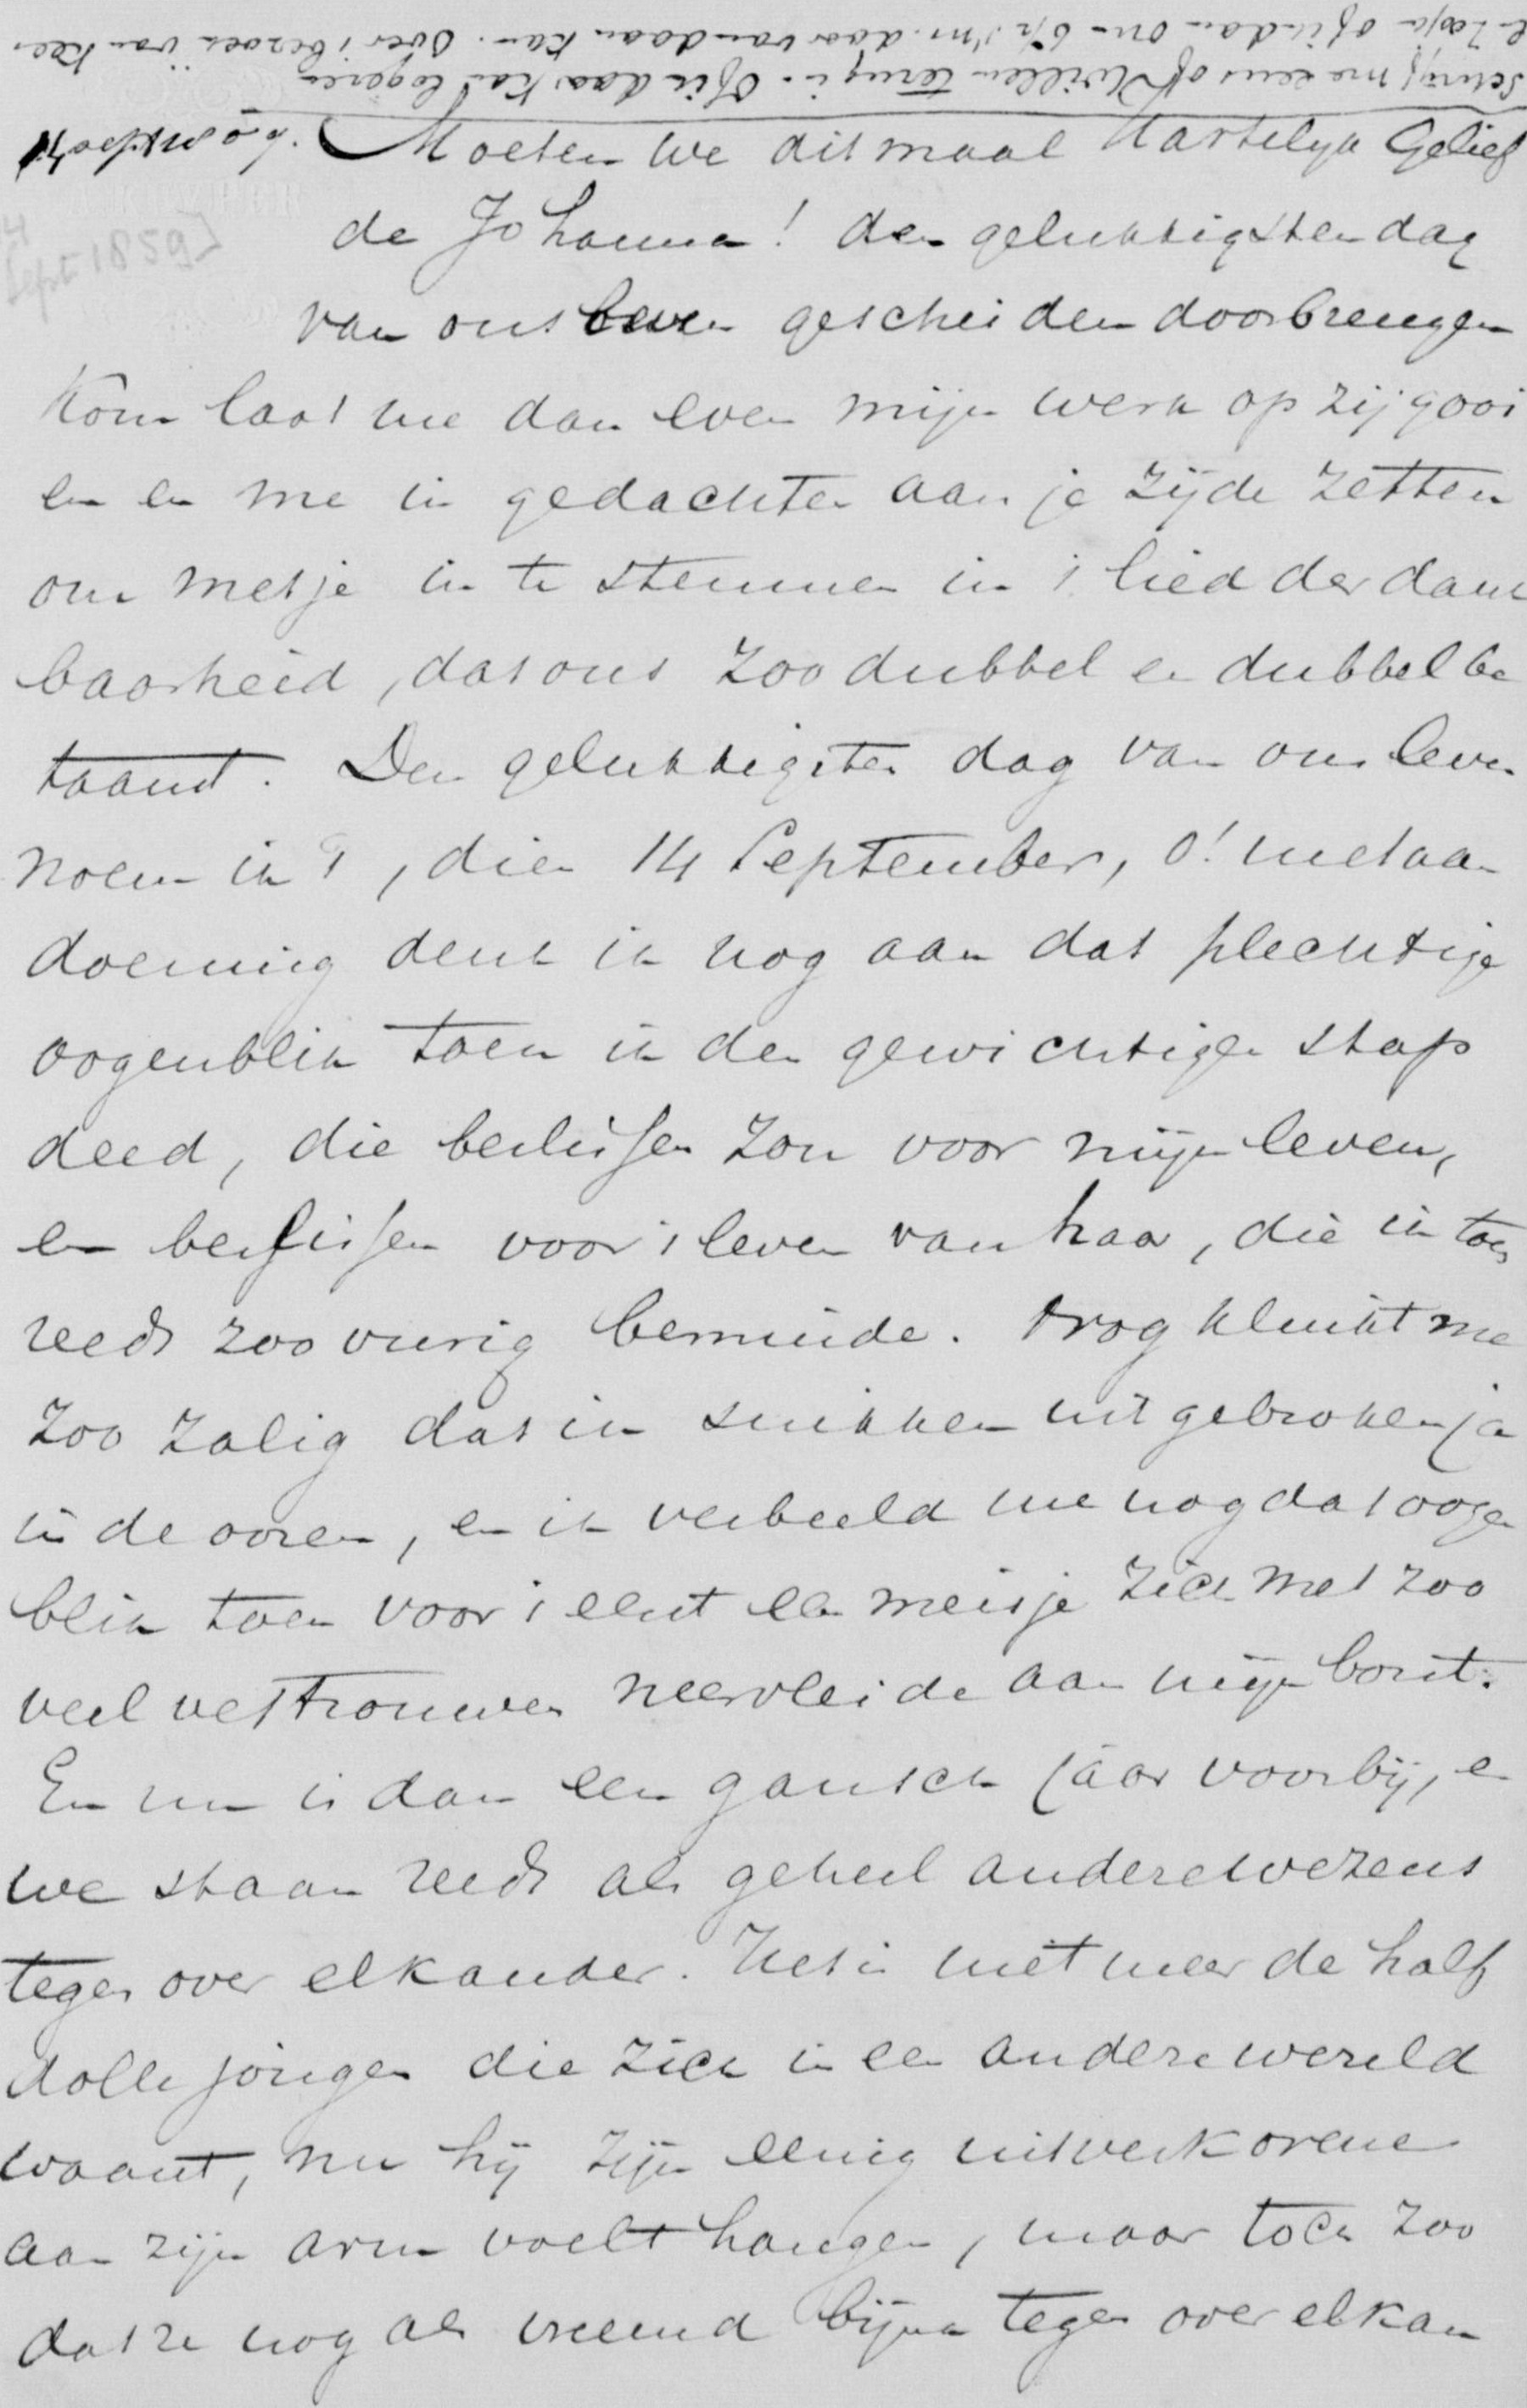 Schrijf me eens of Uwillen terug is. Of ik daar kan logeren
en zoo ja of ik dan om 6½ 's m. daar vandaan kan. Over 't bezoek van Kee
Moeten we ditmaal Hartelijk Gelief
de Johanna! den gelukkigsten dag
14
Sept 1859]
van ons leven gescheiden doorbrengen
Kom laat me dan even mijn werk op zij gooi
en en me in gedachten aan je zijde zetten
om met je in te stemmen in 't lied der dank
baarheid, dat ons zoo dubbel en dubbel be
taamt. Den gelukkigsten dag van ons leven
noem ik 't, dien 14 September, o! met aan
doening denk ik nog aan dat plechtige
oogenblik toen ik den gewichtigen stap
deed, die beslissen zou voor mijn leven,
en beslissen voor 't leven van haar, die ik toen
reeds zoo vurig beminde. Nog klinkt me
zoo zalig dat in snikken uitgebroken ja
in de ooren, en ik verbeeld me nog dat oogen
blik toen voor 't eerst een meisje zich met zoo
veel vertrouwen neervleide aan mijn borst.
En nu is dan een gansch jaar voorbij, en
we staan reeds als geheel andere wezens
tegen over elkander. Het is niet meer de half
dolle jongen die zich in een andere wereld
waant, nu hij zijn eenig uitverkorene
aan zijn arm voelt hangen, maar toch zoo
dat ze nog als vreemd bijna tegen over elkan